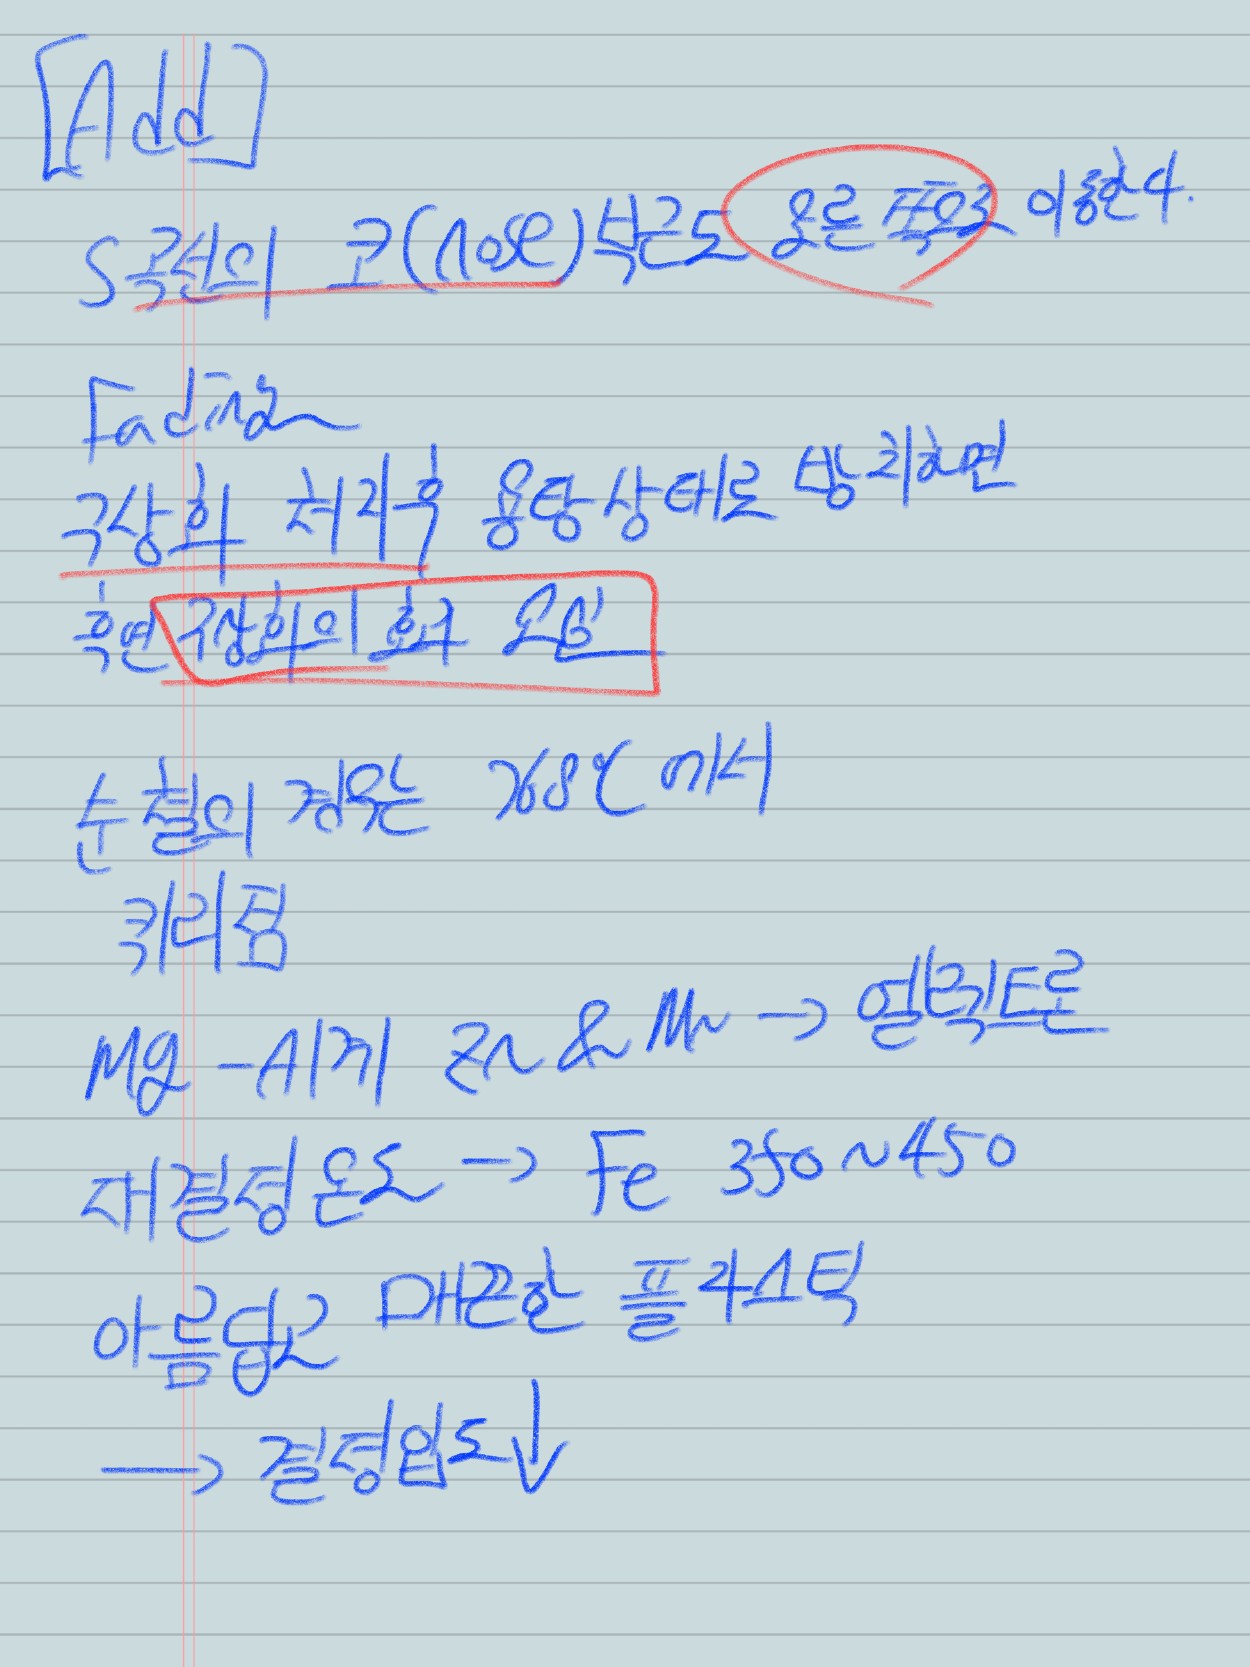 [Add]
S곡선의 코(nose)부근도 오른쪽으로 이동한다.
Fading
구상화 처리후 용탕상태로 방치하면
흑연 구상화의 효과 소실
순철의 경우는 768℃에서
퀴리점
Mg-Al계 Zn & Mn → 엘렉트론
재결정온도 → Fe 350~450
아름답고 매끈한 플라스틱
→ 결정입도↓